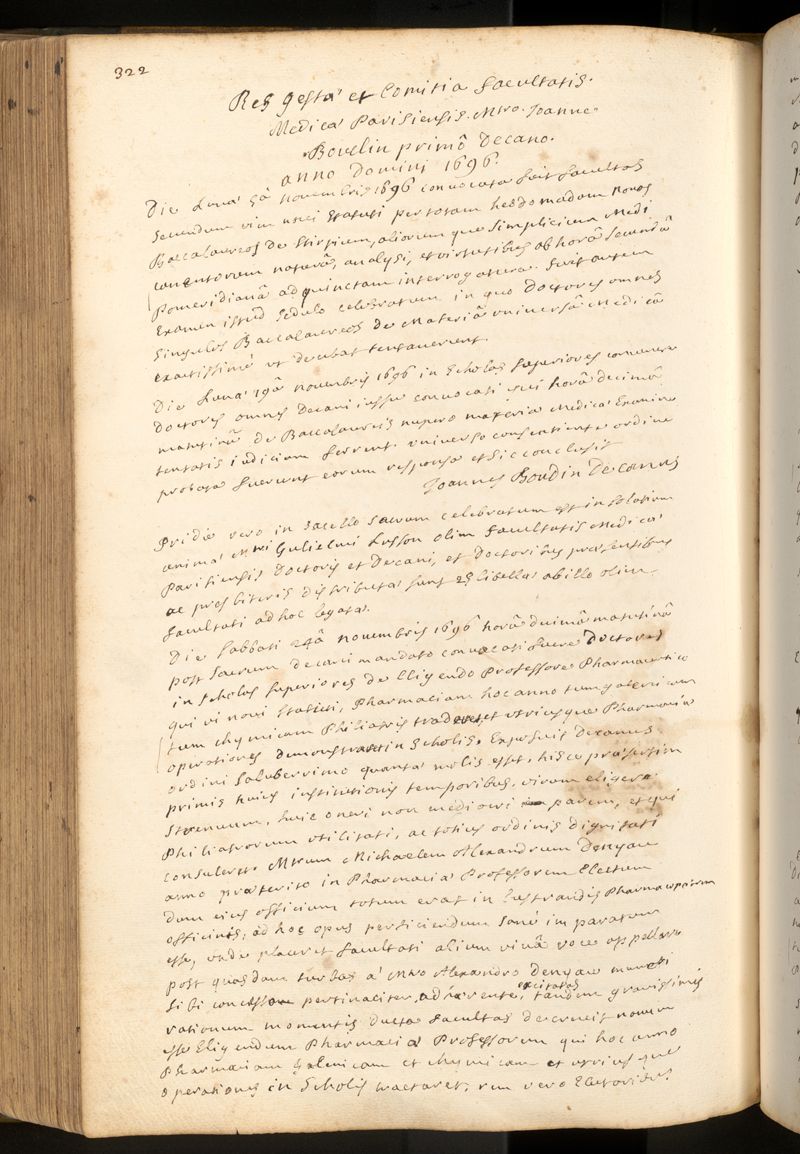 322
Res gestæ et Comitia facultatis
Medicæ Parisiensis. Mro. Joanne
Boudin primo Decano.
anno Domini 1696.
Die Lunæ 5â Novembris 1696 convocata fuit facultas
secundum vim novi statuti per totam hebdomadam novos
Baccalaureos de stirpium, aliorumque simplicium Medi
camentorum naturâ, analysi, et virtutibus ab horâ secundâ
pomeridianâ ad quinctam interrogatura. fuit autem
Examen istud sedulo celebratum in quo Doctores omnes
singulos Baccalaureos de materiâ universâ medicâ
exactissimè ut decebat tentaverunt.
Die Lunæ 19â novembris 1696 in scholas superiores convenere
Doctores omnes Decani iussu convocati qui horâ decimâ
matutinâ de Baccalaureis nupero materiæ Medicæ Examine
tentatis iudicium ferrent. universo consentiente ordine
probata fuerunt eorum responsa et sic conclusit
Joannes Boudin Decanus
Pridie vero in sacello sacrum celebratum est in solatium
animæ Mri Gulielmi Lusson olim facultatis Medicæ
Parisiensis Doctoris et Decani, et Doctoribus præsentibus
ac presbiteris distributæ sunt 25 libellæ ab illo olim
facultati ad hoc legatæ.
Die sabbati 24â novembris 1696 horâ decimâ matutinâ
post sacrum decani mandato convocati fuere Doctores
in scholas superiores de eligendo Professore Pharmaceutico
qui vi novi statuti, Pharmaciam hoc anno tum galenicam
tum chymicam Philiatris traderet et utriusque Pharmaciæ
operationes demonstraret in scholis. Exposuit Decanus
ordini saluberrimo quantæ molis esset, hisce præsertim
primis huius institutionis temporibus, virum eligere
strenuum, huic oneri non mediocri parem, et qui
Philiatrorum utilitati, ac totius ordinis dignitati
consuleret. Mrum Michaelem Alexandrum Denyau
anno præterito in Pharmaciæ Professorem Electum
dum eius officium totum erat in lustrandis Pharmacopæorum
officinis, ad hoc opus perficiendum sanè imparatum
esse, unde placeret facultati alium vivâ voce appellare
post quasdam turbas a Mro Alexandro Denyau muneri
sibi concesso pertinaciter adhærente, excitatas tandem gravissimis
rationum momentis ducta facultas decrevit novum
esse Eligendum Pharmaciæ Professorem qui hoc anno
Pharmaciam galenicam et chymicam et utriusque
operationes in scholis tractaret, rem vero Electoribus